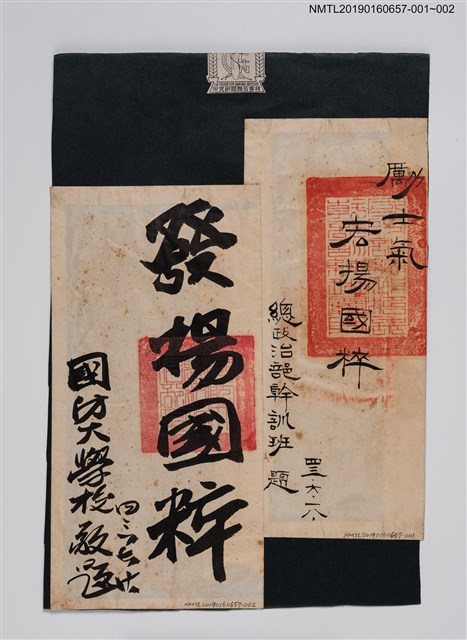 NMTL20190160657-001~002
勵士氣
宏揚國粹
總政治部幹訓班 題
四三·六·一八·
NMTL20190160657-001
發揚國粹
國防大學校敬題
NMTL20190160657-002